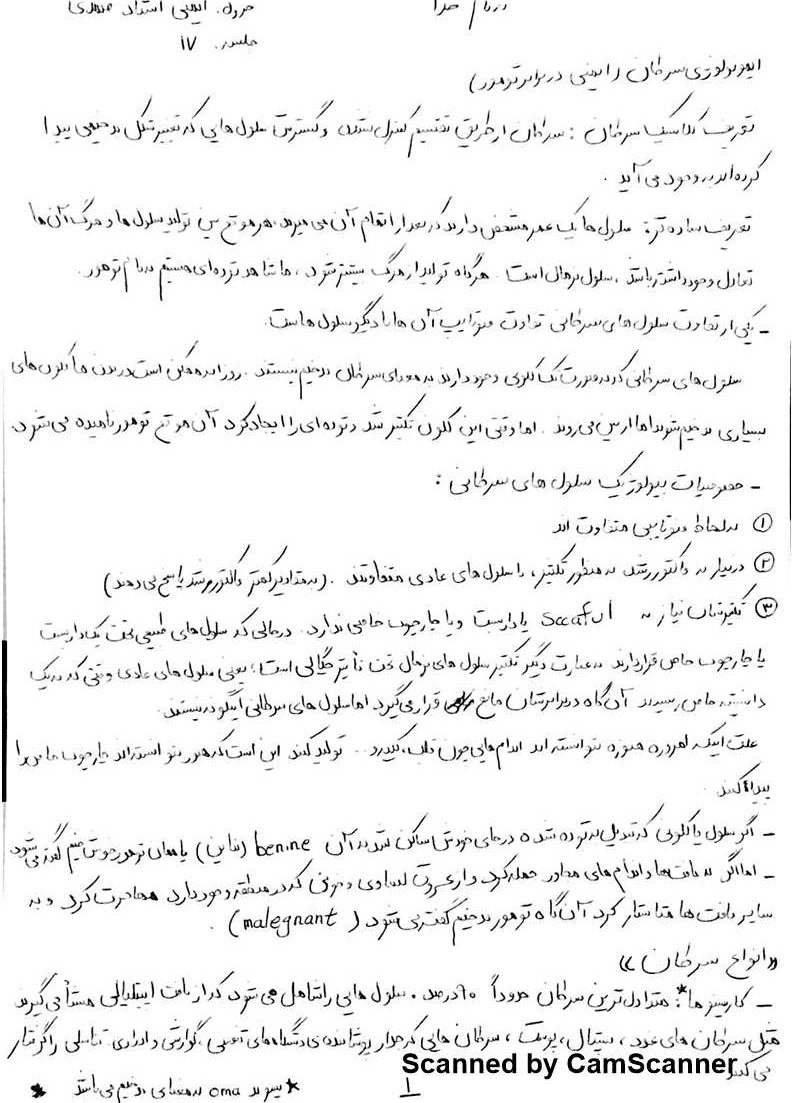 بنام خدا
جزوه ایمنی استاد صمدی
جلسه ۱۷
ایمونولوژی سرطان (ایمنی در برابر تومور)
تعریف کلاسیک سرطان : سرطان از طریق تقسیم کنترل نشده و گسترش سلول هایی که تغییر شکل بدخیمی پیدا
کرده اند بوجود می آید .
تعریف ساده تر: سلول ها یک عمر مشخص دارند که بعد از اتمام آن می میرند. هر موقع بین تولید سلول ها و مرگ آن ها
تعادل وجود داشته باشد ، سلول نرمال است . هرگاه تولید از مرگ بیشتر شود ، ما شاهد توده ای هستیم بنام تومور .
- یکی از تفاوت سلول های سرطانی تفاوت فنوتایپ آن ها با دیگر سلول هاست.
سلول های سرطانی که بصورت تک کلونی وجود دارند به معنای سرطان بدخیم نیستند . روزانه ممکن است در بدن ما کلون های
بسیاری بدخیم شوند اما از بین می روند . اما وقتی این کلون تکثیر شد و توده ای را ایجاد کرد آن موقع تومور نامیده می شود.
- خصوصیات بیولوژیک سلول های سرطانی :
① به لحاظ فنوتایپی متفاوت اند
② در نیاز به فاکتور رشد به منظور تکثیر ، با سلول های عادی متفاوتند . (به مقادیر کمتر فاکتور رشد پاسخ می دهند)
③ تکثیرشان نیاز به Scaaful یا داربست و یا چارچوب خاصی ندارد . درحالی که سلول های طبیعی تحت یک داربست
یا چارچوب خاص قرار دارند به عبارت دیگر تکثیر سلول های نرمال تحت تأثیر چگالی است ؛ یعنی سلول های عادی وقتی که به یک
دانسیته خاص رسیدند آن گاه در برابرشان مانع قرار می گیرد اما سلول های سرطانی اینگونه نیستند.
علت اینکه امروزه هنوز نتوانسته اند اندام هایی چون قلب ، کبد و .. تولید کنند این است که هنوز نتوانسته اند چارچوب خاص را
پیدا کنند.
- اگر سلول یا کلونی که تبدیل به توده شده در جای خودش ساکن شد به آن benine (بناین) یا همان تومور خوش خیم گفته می شود
- اما اگر به بافت ها و اندام های مجاور حمله کرد و از عروق لنفاوی و خونی که در منطقه وجود دارد مهاجرت کرد و به
سایر بافت ها متاستاز کرد آن گاه تومور بدخیم گفته می شود ( malegnant )
«انواع سرطان»
- کارسینوما*: متداول ترین سرطان حدوداً ۹۰ درصد . سلول هایی را شامل می شود که از بافت اپیتلیالی منشأ می گیرند
مثل سرطان های غدد ، پوست ، سرطان هایی که جدار پوشاننده ی دستگاه های تنفسی ، گوارشی و ادراری تناسلی را گرفتار
می کند
* پسوند oma به معنای بدخیم می باشد *
1
Scanned by CamScanner